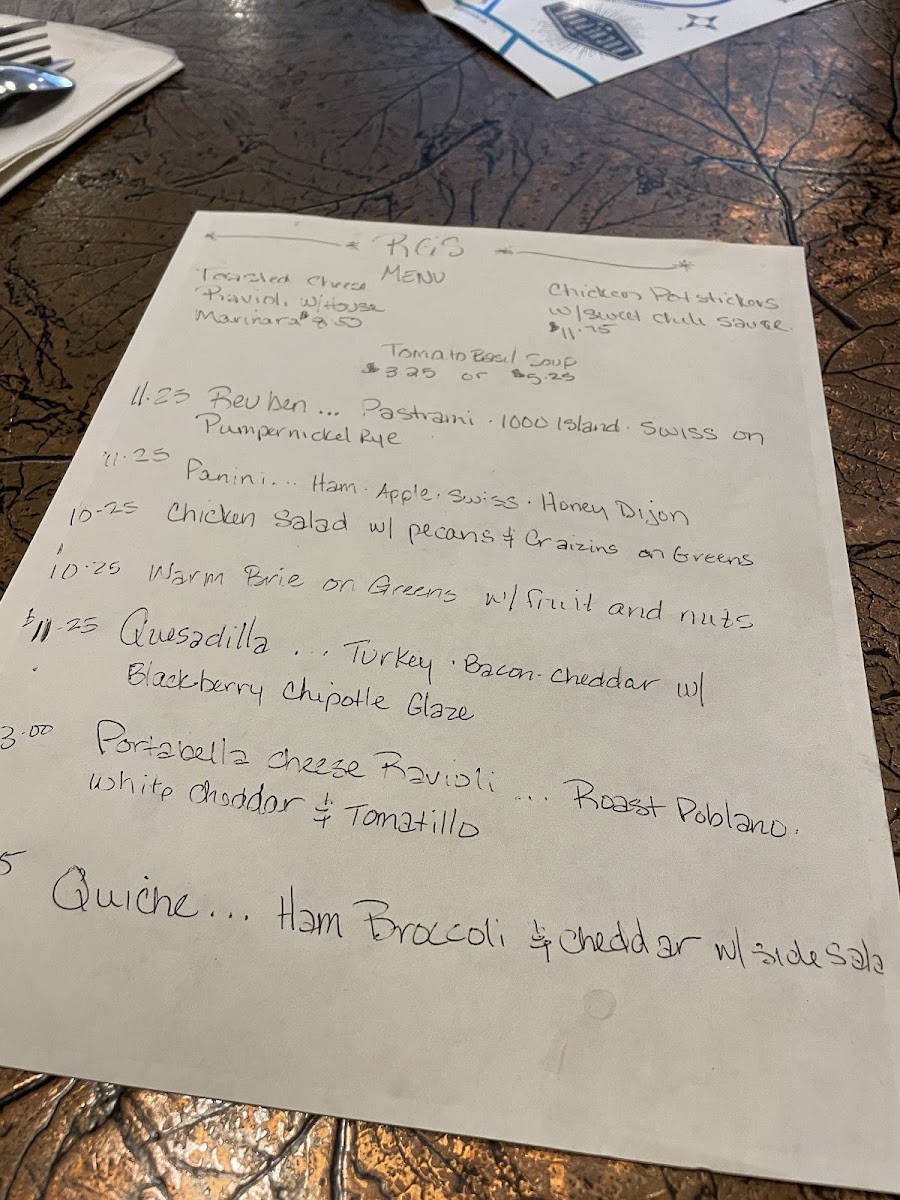 RGS
MENU
Toasted Cheese
Ravioli w/House
Marinara $8.50
Chicken Potstickers
w/sweet chili sauce
$11.75
Tomato Basil Soup
$3.25 or $5.25
11.25 Reuben... Pastrami . 1000 Island . Swiss on
Pumpernickel Rye
11.25 Panini... Ham . Apple . Swiss . Honey Dijon
10.25 Chicken Salad w/ pecans & Craizins on Greens
10.25 Warm Brie on Greens w/ fruit and nuts
$11.25 Quesadilla ... Turkey . Bacon . Cheddar w/
Blackberry Chipotle Glaze
3.00 Portabella Cheese Ravioli ... Roast Poblano.
White Cheddar & Tomatillo
5 Quiche... Ham Broccoli & Cheddar w/ side Sala